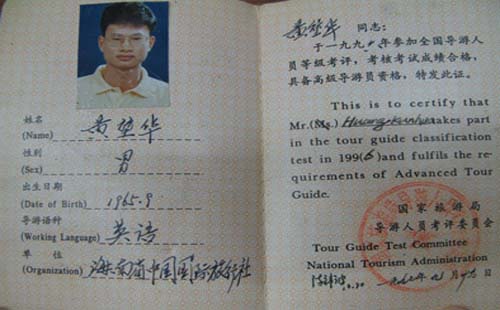 姓名
(Name) 黄堃华
性别
(Sex) 男
出生日期
(Date of Birth) 1965.9
导游语种
(Working Language) 英语
单位
(Organization) 海南省中国国际旅行社
黄堃华 同志:
于一九九 年参加全国导游人
员等级考评,考核考试成绩合格,
具备高级导游员资格,特发此证。
This is to certify that
Mr.(Ms.) takes part
in the tour guide classification
test in 199( )and fulfils the re-
quirements of Advanced Tour
Guide.
国家旅游局
导游人员考评委员会
Tour Guide Test Committee
National Tourism Administration